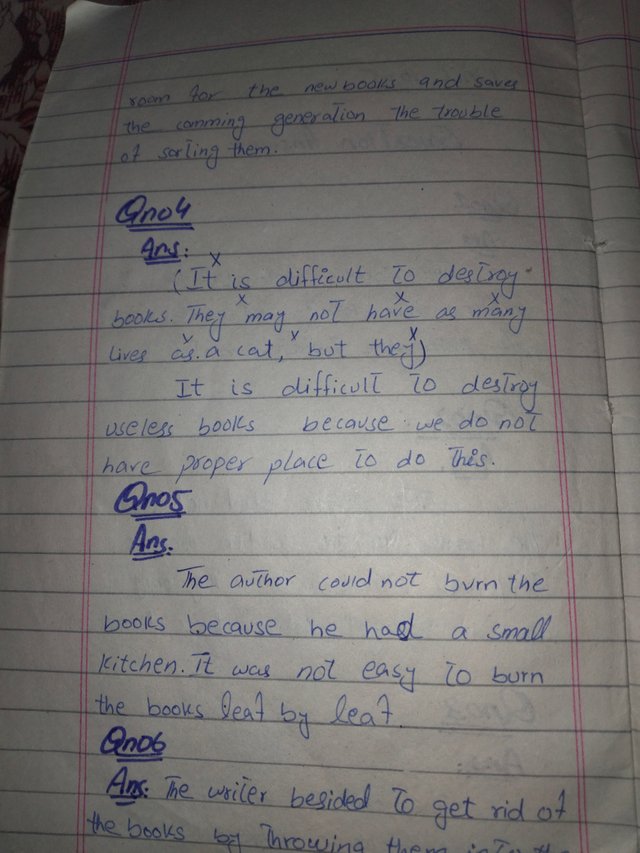 room for the new books and saves
the comming generation the trouble
of sorting them.
Qno4
Ans:
(It is difficult to destroy
books. They may not have as many
lives as a cat, but they)
It is difficult to destroy
useless books because we do not
have proper place to do this.
Qno5
Ans.
The author could not burn the
books because he had a small
kitchen. It was not easy to burn
the books leaf by leaf.
Qno6
Ans: The writer besided to get rid of
the books by throwing them into the